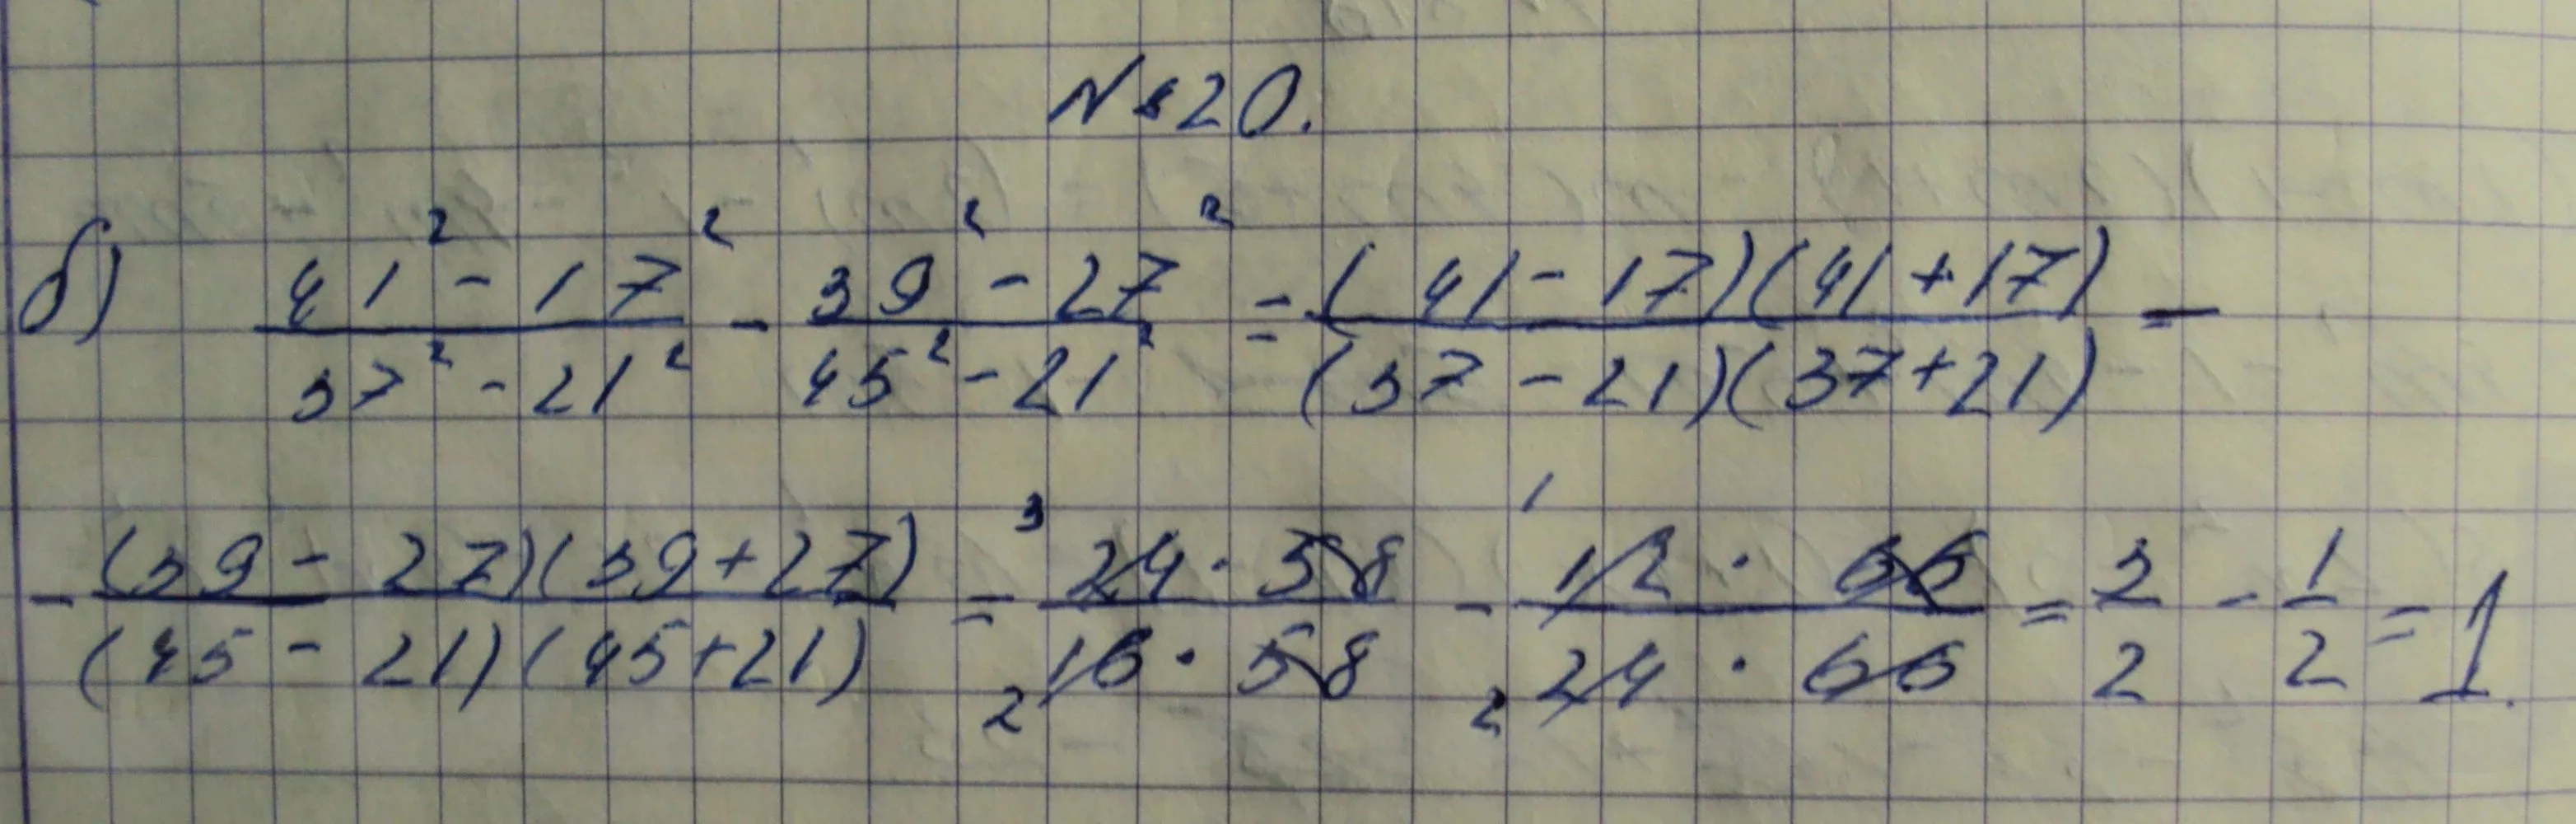 №20.
б) (41² - 17²)/(37² - 21²) - (39² - 27²)/(45² - 21²) = ((41 - 17)(41 + 17))/((37 - 21)(37 + 21)) -
- ((39 - 27)(39 + 27))/((45 - 21)(45 + 21)) = (³24 · 58)/(₂16 · 58) - (¹12 · 66)/(₂24 · 66) = 3/2 - 1/2 = 1.